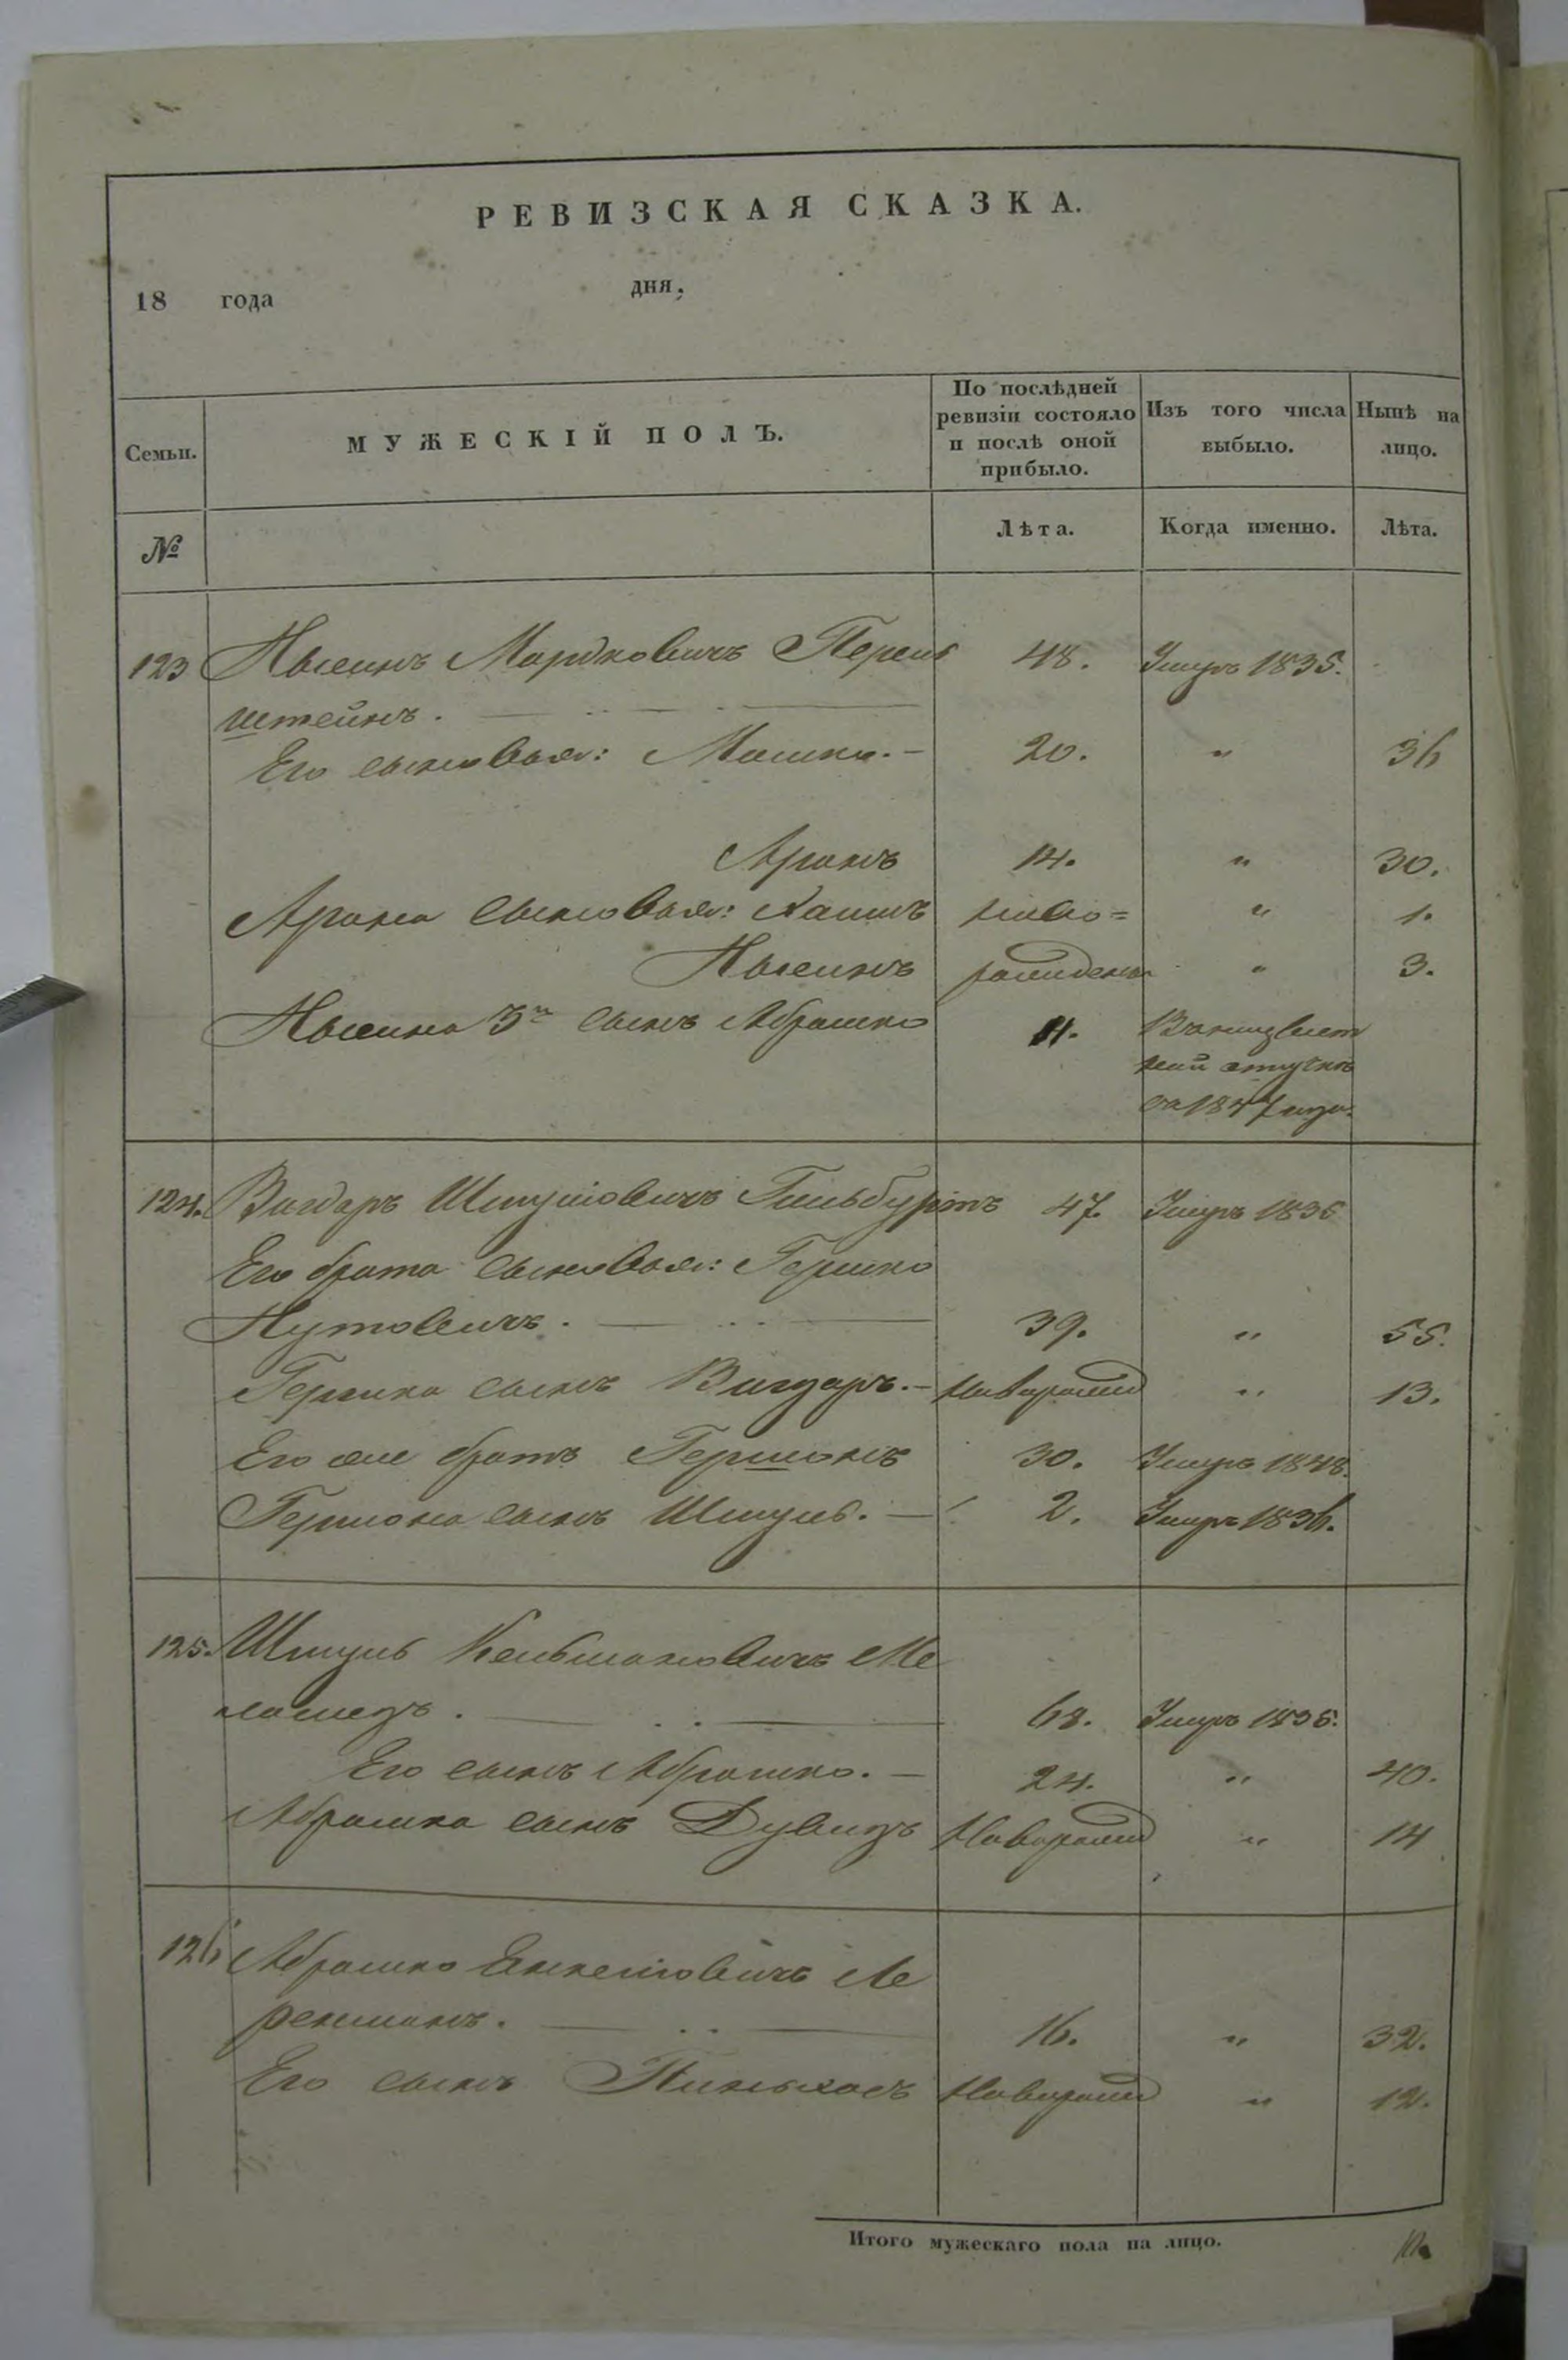 РЕВИЗСКАЯ СКАЗКА.
18 года дня,
Семьи. МУЖЕСКІЙ ПОЛЪ. По послѣдней ревизіи состояло и послѣ оной прибыло. Изъ того числа выбыло. Нынѣ на лицо.
№ Лѣта. Когда именно. Лѣта.
123 Нысинъ Мордковичъ Перель 48. Умеръ 1835.
штейнъ.
Его сыновья: Мошко. 20. " 36
Аронъ 14. " 30.
Арона сыновья: Хаимъ ново= " 1.
Нысинъ рожденны " 3.
Нысина 3й сынъ Абрашко 11. Въ неизвест
ной отлучке
съ 1847 года.
124. Вигдоръ Шмулiовичъ Гильбуртъ 47. Умеръ 1835
Его брата сыновья: Гершко
Нутовичъ. 39. " 55.
Гершка сынъ Вигдоръ. новорожд " 13.
Его же братъ Гершонъ 30. Умеръ 1848.
Гершона сынъ Шмуль. 2. Умеръ 1836.
125. Шмуль Кельмановичъ Ме
ламедъ. 68. Умеръ 1835.
Его сынъ Абрашко. 24. " 40.
Абрашка сынъ Дувидъ новорожд " 14
126 Абрашко Янкелiовичъ Ле
рекманъ. 16. " 32.
Его сынъ Пиньхасъ новорожд " 12.
Итого мужескаго пола на лицо. 10.